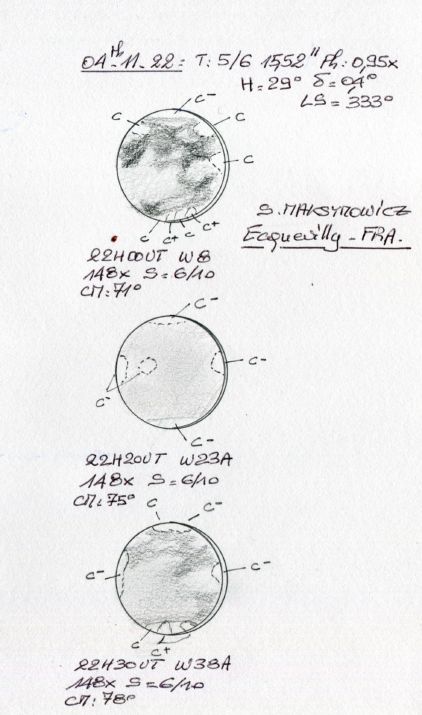 04th-11-22: T: 5/6 15,52" Ph: 0,95x
H = 29° δ = 04°
LS = 333°
C-
C
C
C
C
C+
C
C+
S. MAKSYMOWICZ
Ecquevilly - FRA.
22H00UT W8
148x S = 6/10
CM: 71°
C-
C-
C-
C-
22H20UT W23A
148x S = 6/10
CM: 75°
C
C-
C-
C-
C
C+
22H30UT W38A
148x S = 6/10
CM: 78°